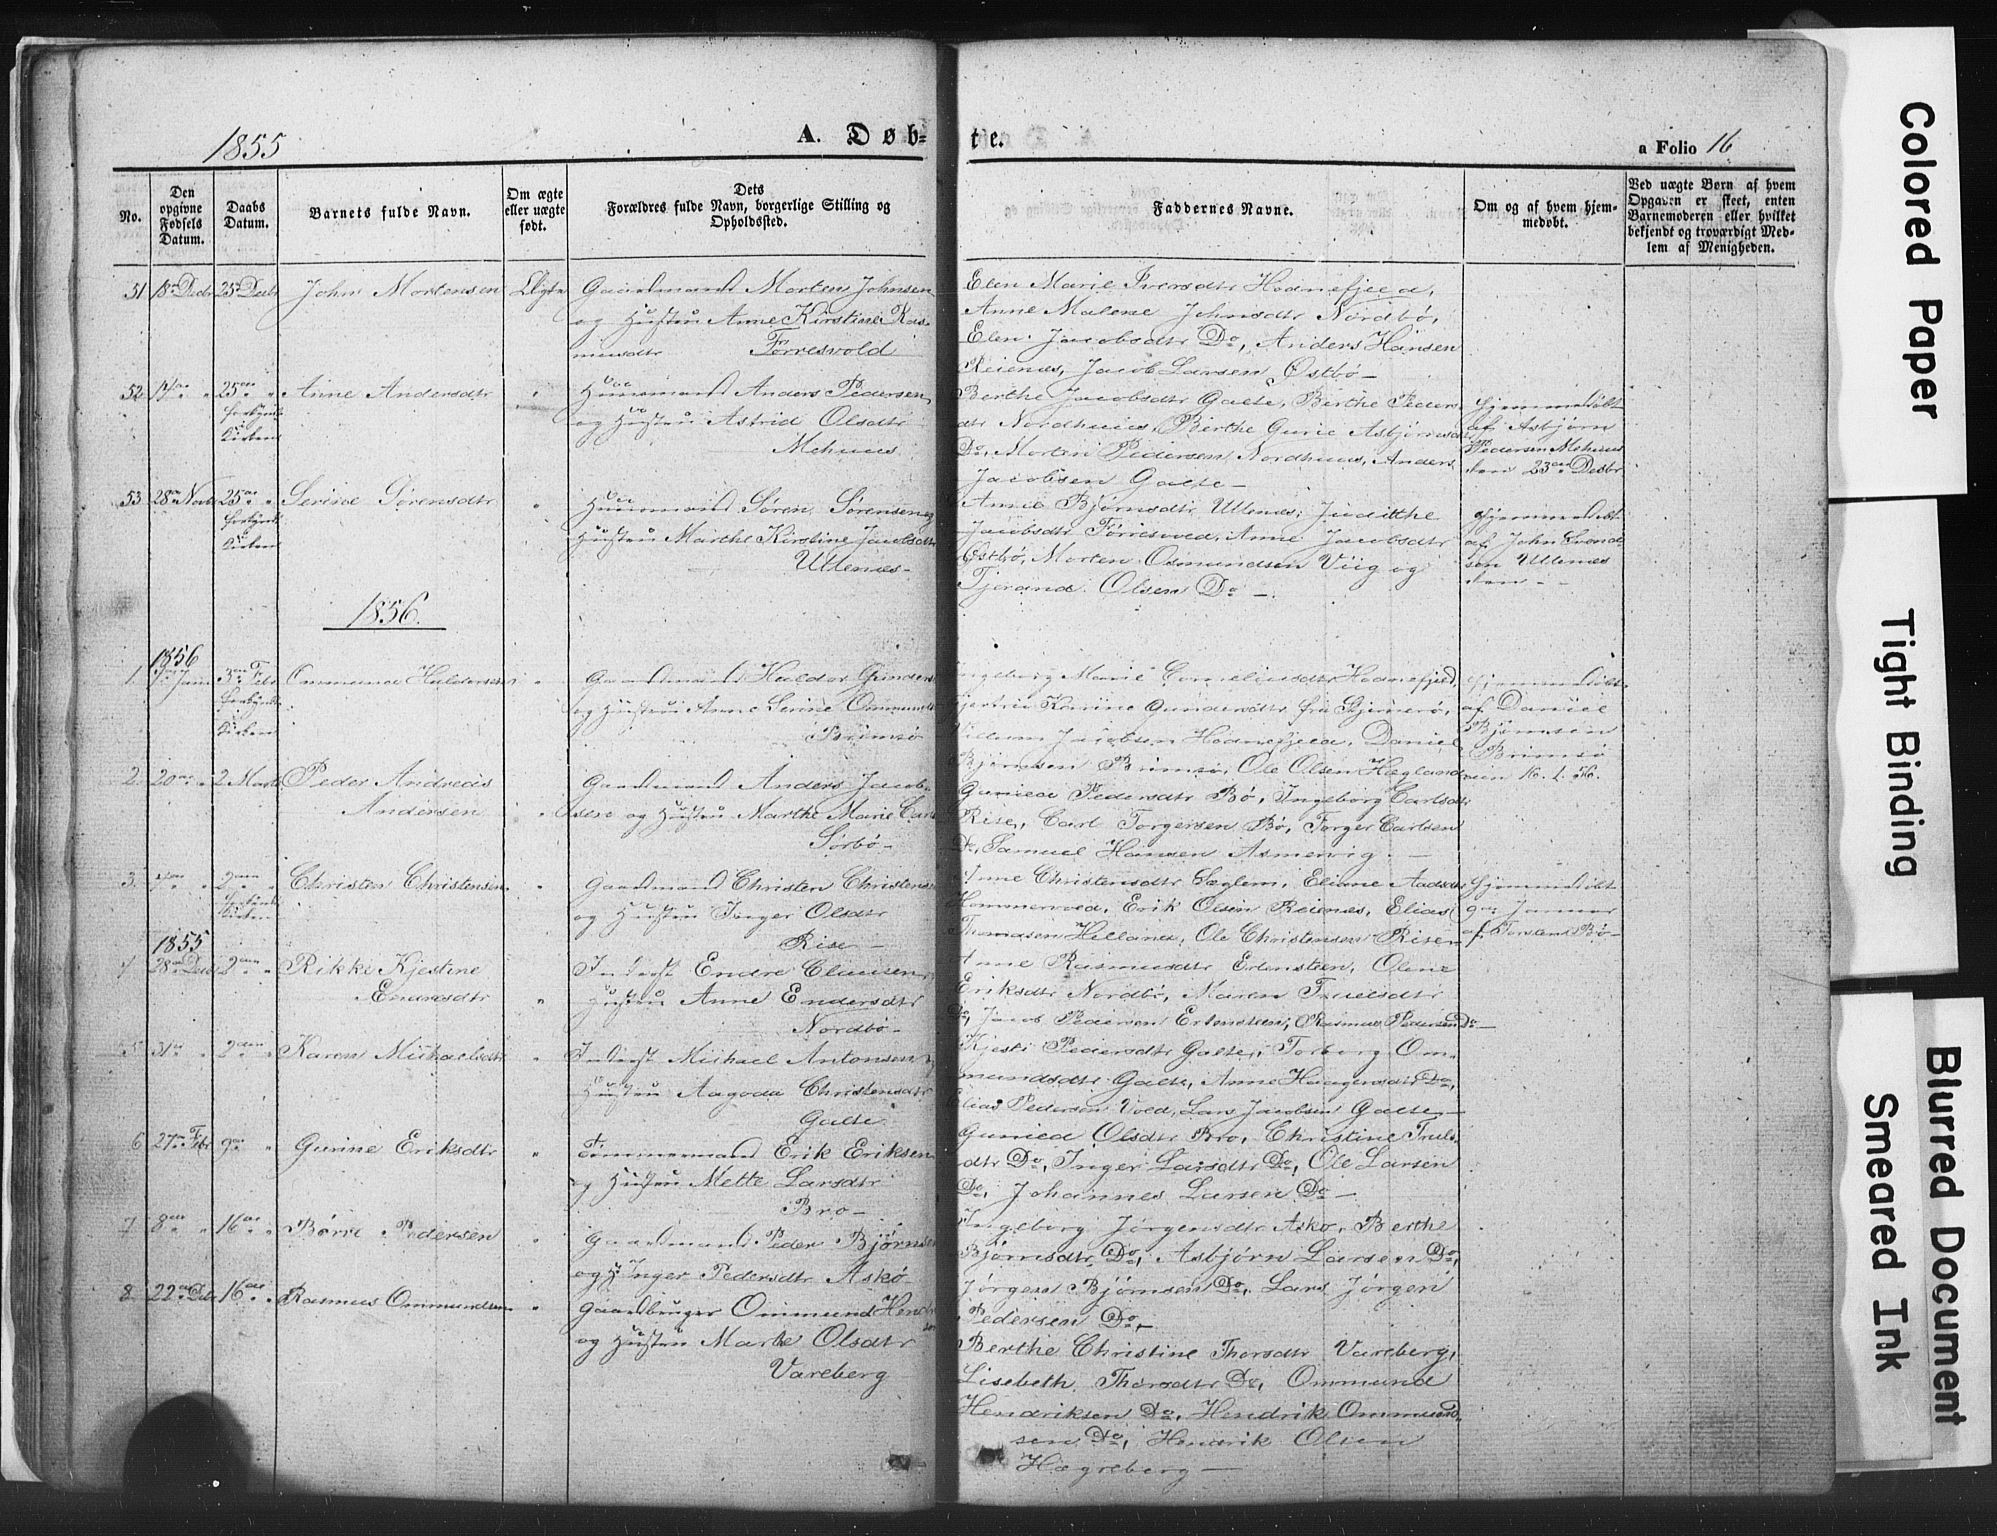 1855
A. Døb-
te.
a Folio 16
No.
Den opgivne Fødsels Datum.
Daabs Datum.
Barnets fulde Navn.
Om ægte eller uægte født.
Dets Forældres fulde Navn, borgerlige Stilling og Opholdssted.
Faddernes Navne.
Om og af hvem hjem-
medøbt.
Ved uægte Børn af hvem
Opgaven er skeet, enten
Barnemoderen eller hvilket
bekjendt og troværdigt Med-
lem af Menigheden.
51 18 Decbr 25 Decbr John Mortensen Ægte Gaardmand Morten Johnsen
og Hustru Anne Kirstine Ras-
musdtr Førresvold
Elen Marie Iversdtr Hodnefjeld,
Anne Malene Johnsdtr Nordbø,
Elen Jacobsdtr Do, Anders Hansen
Reienæs, Jacob Larsen Østbø –
52 25 Anne Andersdtr " Huusmand Anders Pedersen
og Hustru Astrid Olsdtr
Mehuus
Berthe Jacobsdtr Galte, Berthe Peders-
dtr Nordhuus, Berthe Gurie Asbjørnsdtr
Do, Morten Pedersen Nordhuus, Anders
Jacobsen Galte –
Hjemmedøbt
af Asbjørn
Pedersen Mehuus
den 23 Decbr
53 28 Novbr 25 " Serine Sørensdtr " Huusmand Søren Sørensen og
Hustru Marthe Kirstine Jacobsdtr
Utlenæs –
Anne Bjørnsdtr Utlenæs, Judithe
Jacobsdtr Førresvold, Anne Jacobsdtr
Østbø, Morten Osmundsen Viig og
Tjerand Olsen Do –
Hjemmedøbt
af John
Utlenæs
den –
1856.
1856
1 Janu 3 Feb Ommund Haldorsen " Gaardmand Haldor Gunders
og Hustru Anne Serine Ommunds
Brimsø
Ingeborg Marie Corneliusdtr Hodnefjeld,
Karine Gundersdtr fra
Villum Jacobsen Hodnefjeld, Daniel
Bjørnsen Brimsø, Ole Olsen Hægland
Hjemmedøbt
af Daniel
Bjørnsen
Brimsø
den 16. 1. 56.
2 20 " 2 Marts Peder Andreas
Andersen
Gaardmand Anders Jacob-
sen og Hustru Marthe Marie Carls
Sørbø –
Gunild Pedersdtr Bø, Ingeborg Carlsdtr
Rise, Carl Torgersen Bø, Torger Carlsen
Do, Samuel Hansen Asmervig. –
3 " 2 " Christen Christensen " Gaardmand Christen Christens
og Hustru Inger Olsdtr
Rise –
Anne Christensdtr Sæglem, Eliane Aadsdtr
Hommervold, Erik Olsen Reienæs, Elias
Thomasen Helland, Ole Christensen Risen
Hjemmedøbt
Januar
af Torsten Bø –
1855
4 28 Decb 2 " Rikke Kjestine
Endresdtr
Inderst Endre Clausen
Hustru Anne Endersdtr
Nordbø –
Anne Rasmusdtr Erlensteen, Olene
Eriksdtr Nordbø, Maren Truelsdtr
Do, Jacob Pedersen Erlensteen, Rasmus Pedersen Do –
5 31 " 2 " Karen Michaelsdtr " Inderst Michael Antonsen og
Hustru Aagoda Christensdtr
Galte
Kjesti Pedersdtr Galte, Torborg Om-
mundsdtr Galte, Anne Haagensdtr Do,
Elias Pedersen Vold, Lars Jacobsen Galte –
6 27 Febr 9 " Gurine Eriksdtr " Tømmermand Erik Eriksen
og Hustru Mette Larsdtr
Bro –
Gunild Olsdtr Bro, Christine Truls-
dtr Do, Inger Larsdtr Do, Ole Larsen
Do, Johannes Larsen Do –
7 8 " 16 " Børre Pedersen " Gaardmand Peder Bjørnsen
og H Inger Pedersdtr Askø
Ingeborg Jørgensdtr Askø, Berthe
Bjørnsdtr Do, Asbjørn Larsen Do,
Jørgen Bjørnsen Do, Lars Jørgen
Pedersen Do, –
8 22 16 " Rasmus Ommundsen " Gaardbruger Ommund Hend
og Hustru Marte Olsdtr
Vareberg
Berthe Christine Thorsdtr Vareberg,
Lisebeth Thorsdtr Do, Ommund
Hendriksen Do, Hendrik Ommund-
sen Do, Hendrik Olsen
Hægreberg –
Colored Paper
Tight Binding
Blurred Document
Smeared Ink